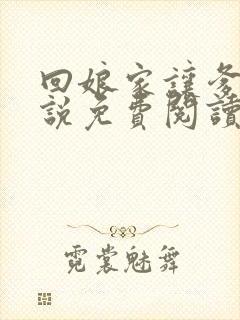 回娘家讓爹
說免費閱讀
霓裳魅舞